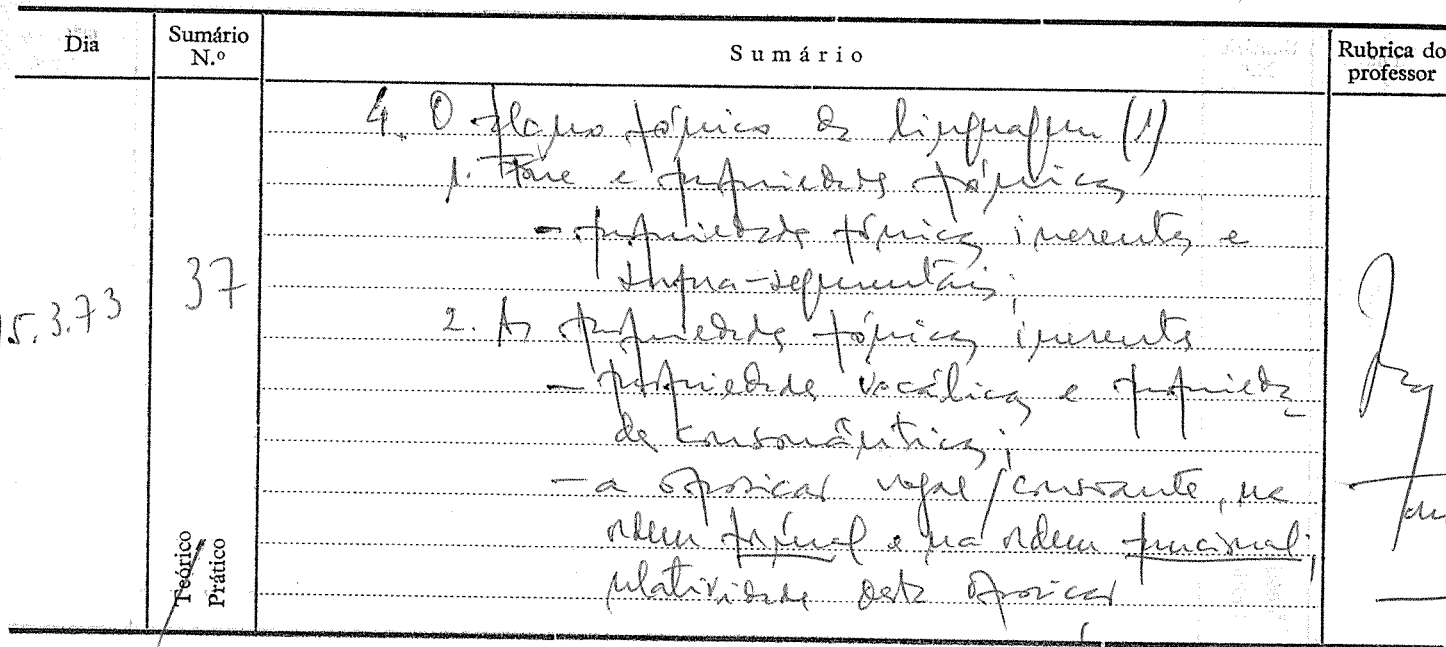 Dia
Sumário N.º
Sumário
Rubrica do professor
4. O plano fónico da linguagem (1)
1. Fone e propriedades fónicas
- propriedades fónicas inerentes e
supra-segmentais;
5.3.73
37
2. As propriedades fónicas inerentes
- propriedades vocálicas e proprieda
des consonânticas;
- a oposição vogal/consoante, na
ordem formal e na ordem funcional;
relatividade desta oposição
Teórico
Prático